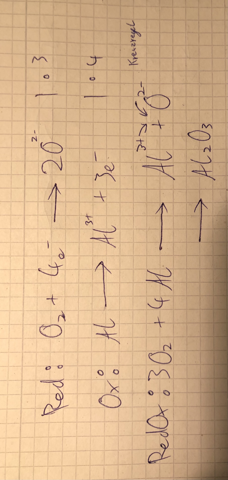 Red: O₂ + 4e⁻ → 2O²⁻ | · 3
Ox: Al → Al³⁺ + 3e⁻ | · 4
RedOx: 3O₂ + 4Al → Al³⁺ + O²⁻ Kreuzregel
→ Al₂O₃